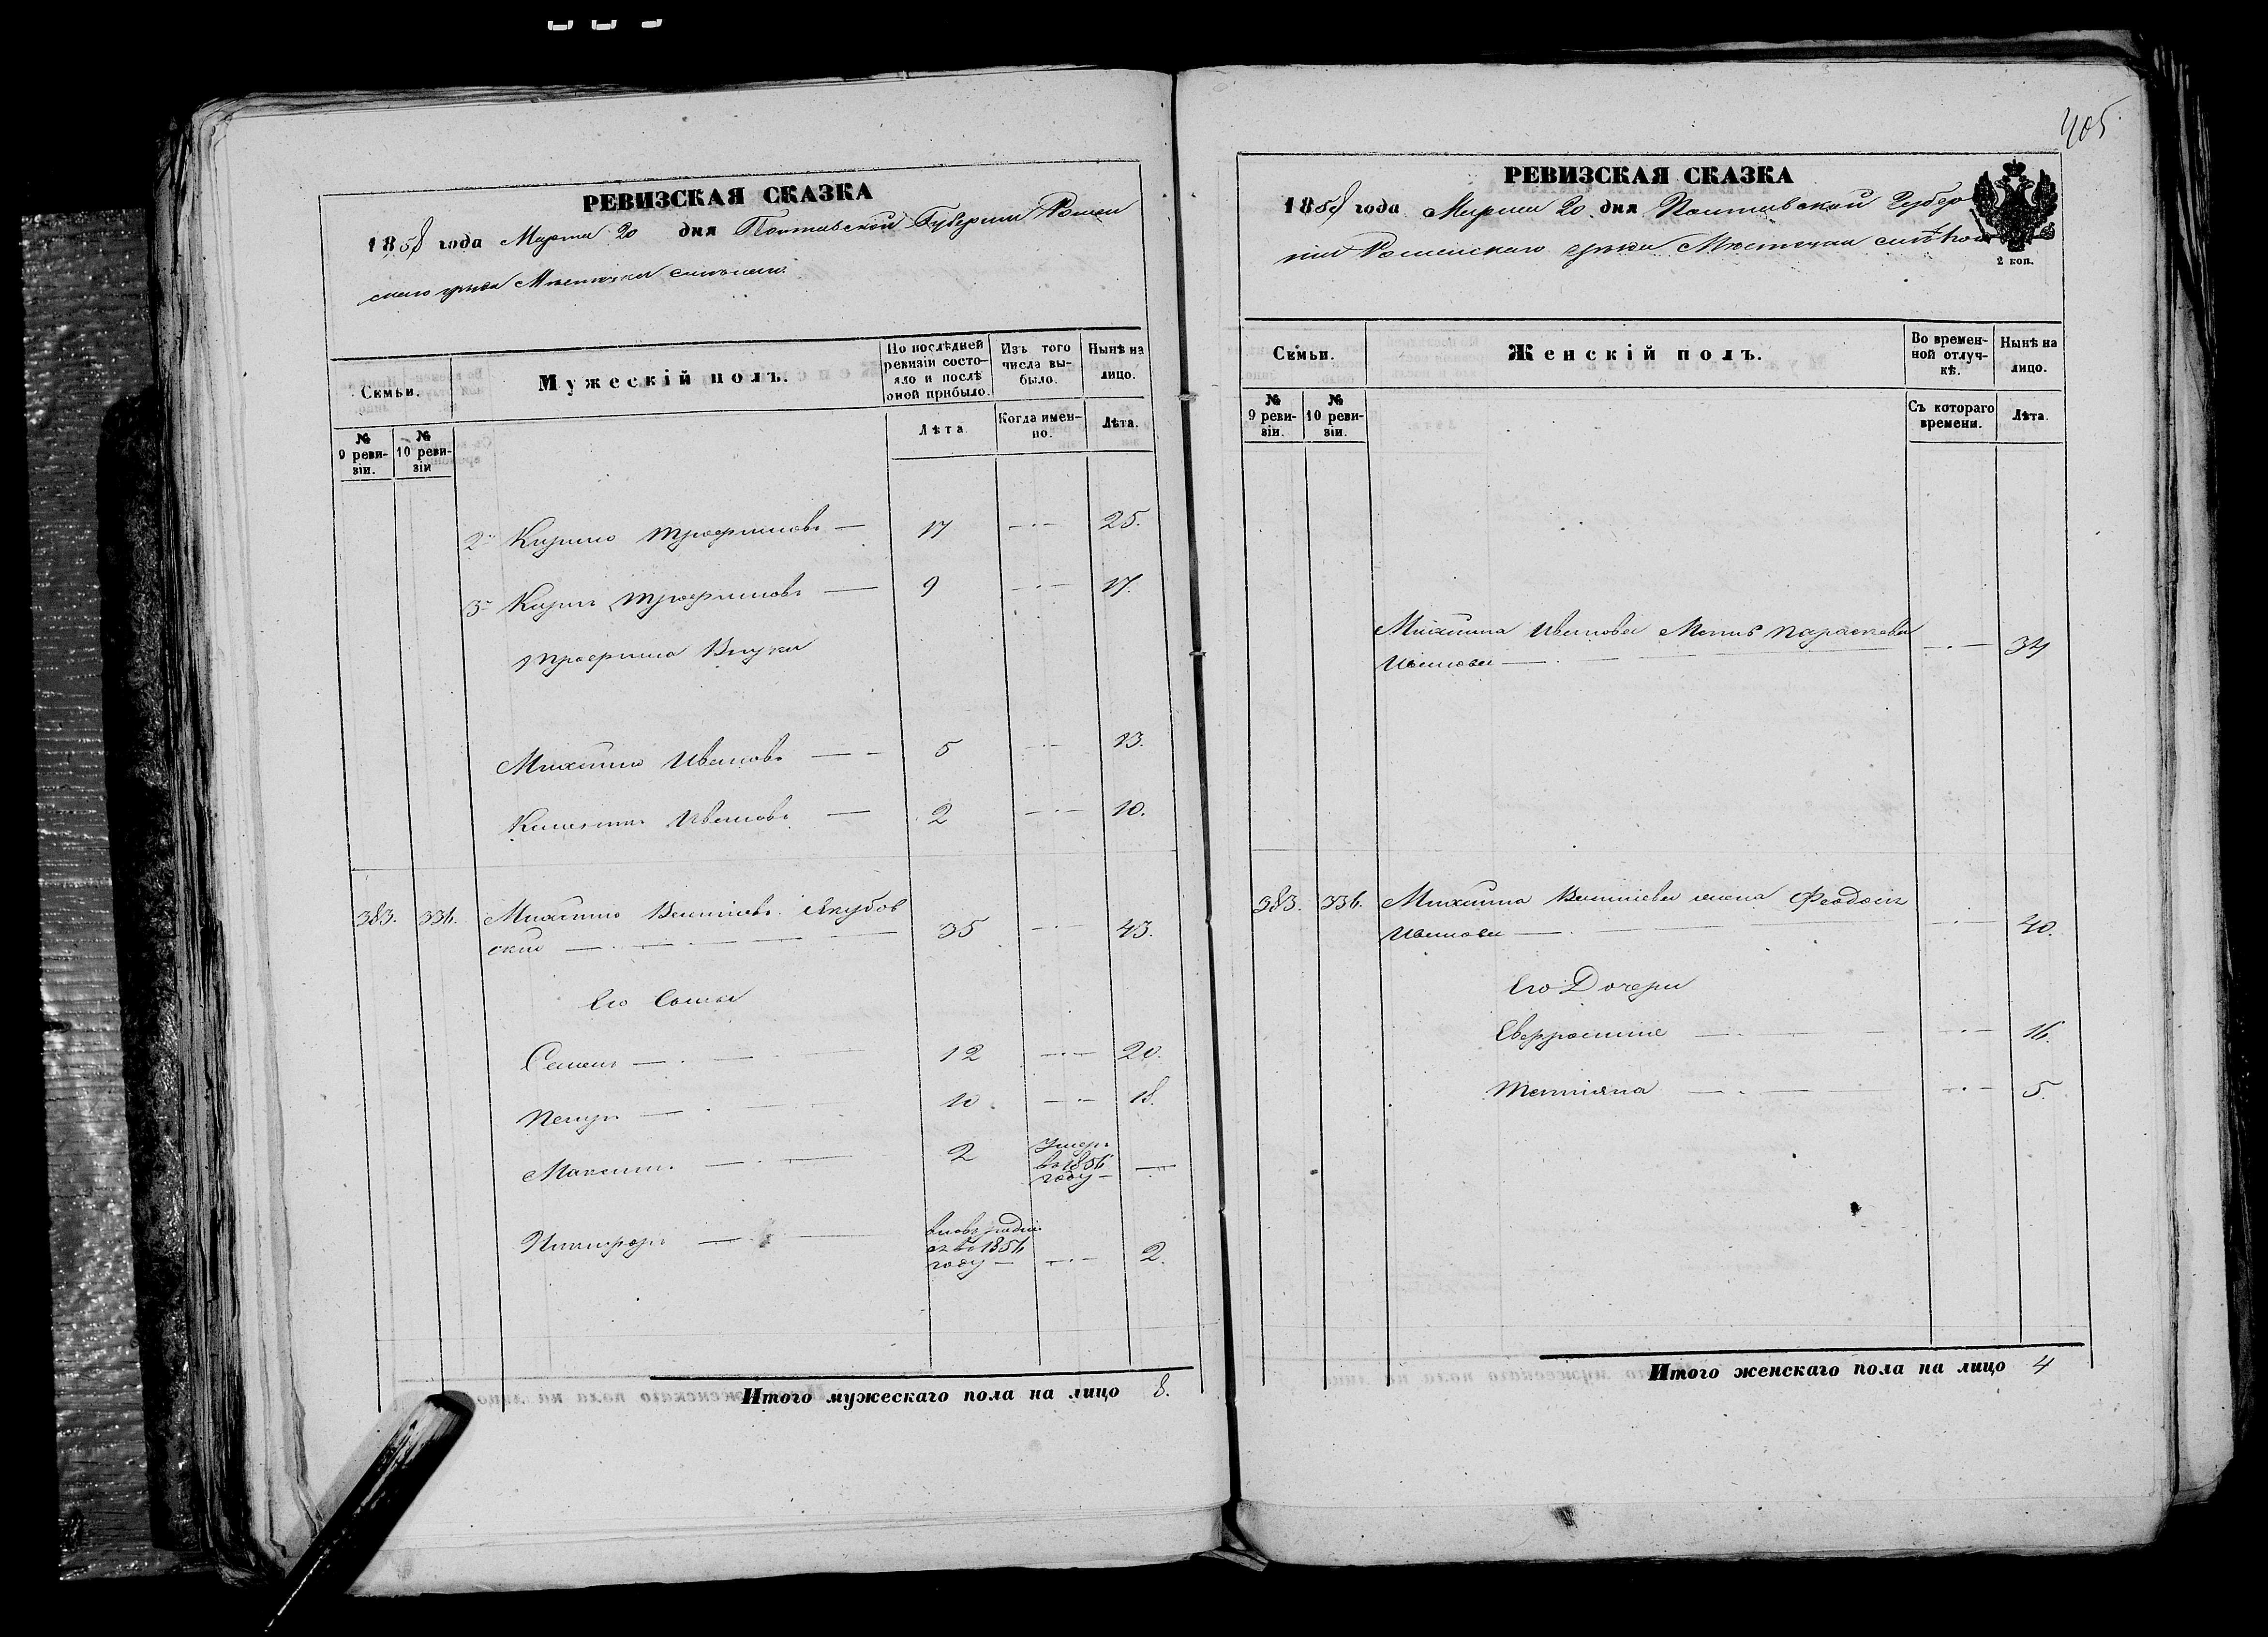 405
РЕВИЗСКАЯ СКАЗКА
1858 года Марта 20 дня Полтавской Губернии Ромен
скаго уезда Местечка
Семьи.
Мужескій полъ.
По послѣдней ревизіи состояло и послѣ оной прибыло.
Изъ того числа выбыло.
Нынѣ на лицо.
№ 9 ревизіи.
№ 10 ревизіи
Лѣта
Когда именно.
Лѣта.
2й Кирило Трофимовъ — 17 — 25.
3й Карпъ Трофимовъ — 9 — 17.
Трофима Внуки
Михаило Ивановъ — 5 — 13.
Ивановъ — 2 — 10.
383. 336. Михаило Якубов
скій — 35 — 43.
Его Сыны
Семенъ — 12 — 20.
Петръ — 10 — 18.
Максимъ — 2 Умеръ въ 1856 году —
Никифоръ — вновь родил ся въ 1856 году — 2.
Итого мужескаго пола на лицо 8.
РЕВИЗСКАЯ СКАЗКА
1858 года Марта 20 дня Полтавской Губер
ніи Роменскаго уезда Местечка
2 коп.
Семьи.
Женскій полъ.
Во временной отлучкѣ.
Нынѣ на лицо.
№ 9 ревизіи.
№ 10 ревизіи.
Съ котораго времени.
Лѣта.
Михаила Иванова Мать Параскева
Иванова — 34
383. 336. Михаила жена Феодосія
Иванова — 40.
Его Дочери
Евфросинія — 16.
Татіана — 5.
Итого женскаго пола на лицо 4